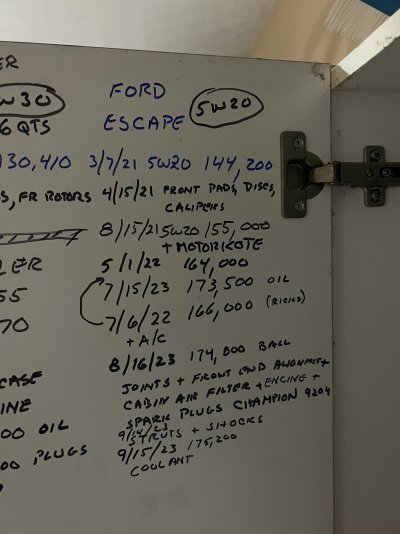 ER
W30
FORD
5W20
6 QTS
ESCAPE
130,410
3/7/21 5W20 144,200
S, FR ROTORS
4/15/21 FRONT PADS, DISCS,
CALIPERS
8/15/21 5W20 155,000
+ MOTORKOTE
LER
5/1/22 164,000
55
7/15/23 173,500 OIL
70
7/6/22 166,000 (RICK'S)
+ A/C
8/16/23 174,000 BALL
CASE
JOINTS + FRONT END ALIGNMENT +
INE
CABIN AIR FILTER + ENGINE +
SPARK PLUGS CHAMPION 9204
00 OIL
9/14/23
STRUTS + SHOCKS
00 PLUGS
9/15/23 175,200
COOLANT